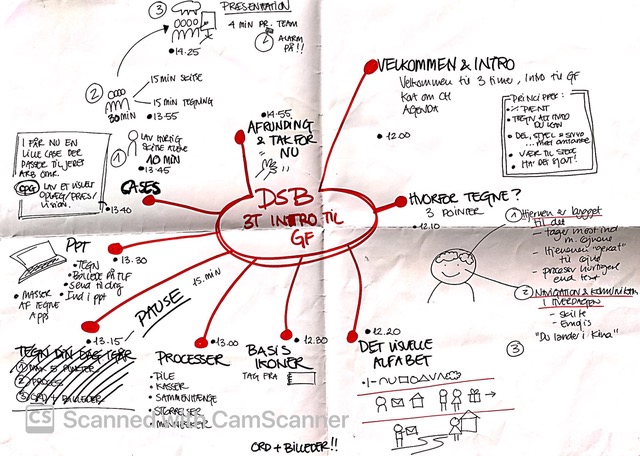 DSB
3T INTRO TIL
GF
VELKOMMEN & INTRO
Velkommen til 3 timer, Intro til GF
Kort om CH
AGENDA
• 12.00
PRINCIPPER:
• % PÆNT
• TEGN ALT HVAD DU KAN
• DEL, STJÆL &
• VÆR TIL STEDE
• HA' DET SJOVT!
HVORFOR TEGNE?
3 POINTER
• 12.10
1 Hjernen er bygget til det
- tager mest ind m. øjnene
- Hjernens "genvej" til
- process hurtigere end text
2 NAVIGATION & KOMMUNIKATION I HVERDAGEN
- skilte
- Emojis
"Du lander i Kina"
3
• 12.20
DET VISUELLE
ALFABET
• 12.30
BASIS
IKONER
TAG FRA
ORD + BILLEDER!!
• 13.00
PROCESSER
• PILE
• KASSER
• SAMMENHÆNGE
• STØRRELSER
• MENNESKER
15. min
PAUSE
• 13.15
TEGN DIN DAG IGÅR
1 MAX 5 PUNKTER
2 PROCES
3 ORD + BILLEDER
PPT
• 13.30
• TEGN
• BILLEDE PÅ TLF
• Send til dig
• Ind i ppt
• MASSER AF TEGNE APPS
CASES
• 13.40
I FÅR NU EN
LILLE CASE DER
PASSER TIL JERES
ARB. OMR.
OPG LAV ET VISUELT
OPLÆG/PRES/
VISION.
1 LAV HURTIG
SKITSE ALENE
10 MIN
• 13.45
2
30 MIN
15 MIN SKITSE
15 MIN TEGNING
• 13.55
3 PRESENTATION
4 MIN PR. TEAM
ALARM PÅ!!
• 14.25
• 14.55
AFRUNDING
& TAK FOR
NU
CS Scanned with CamScanner